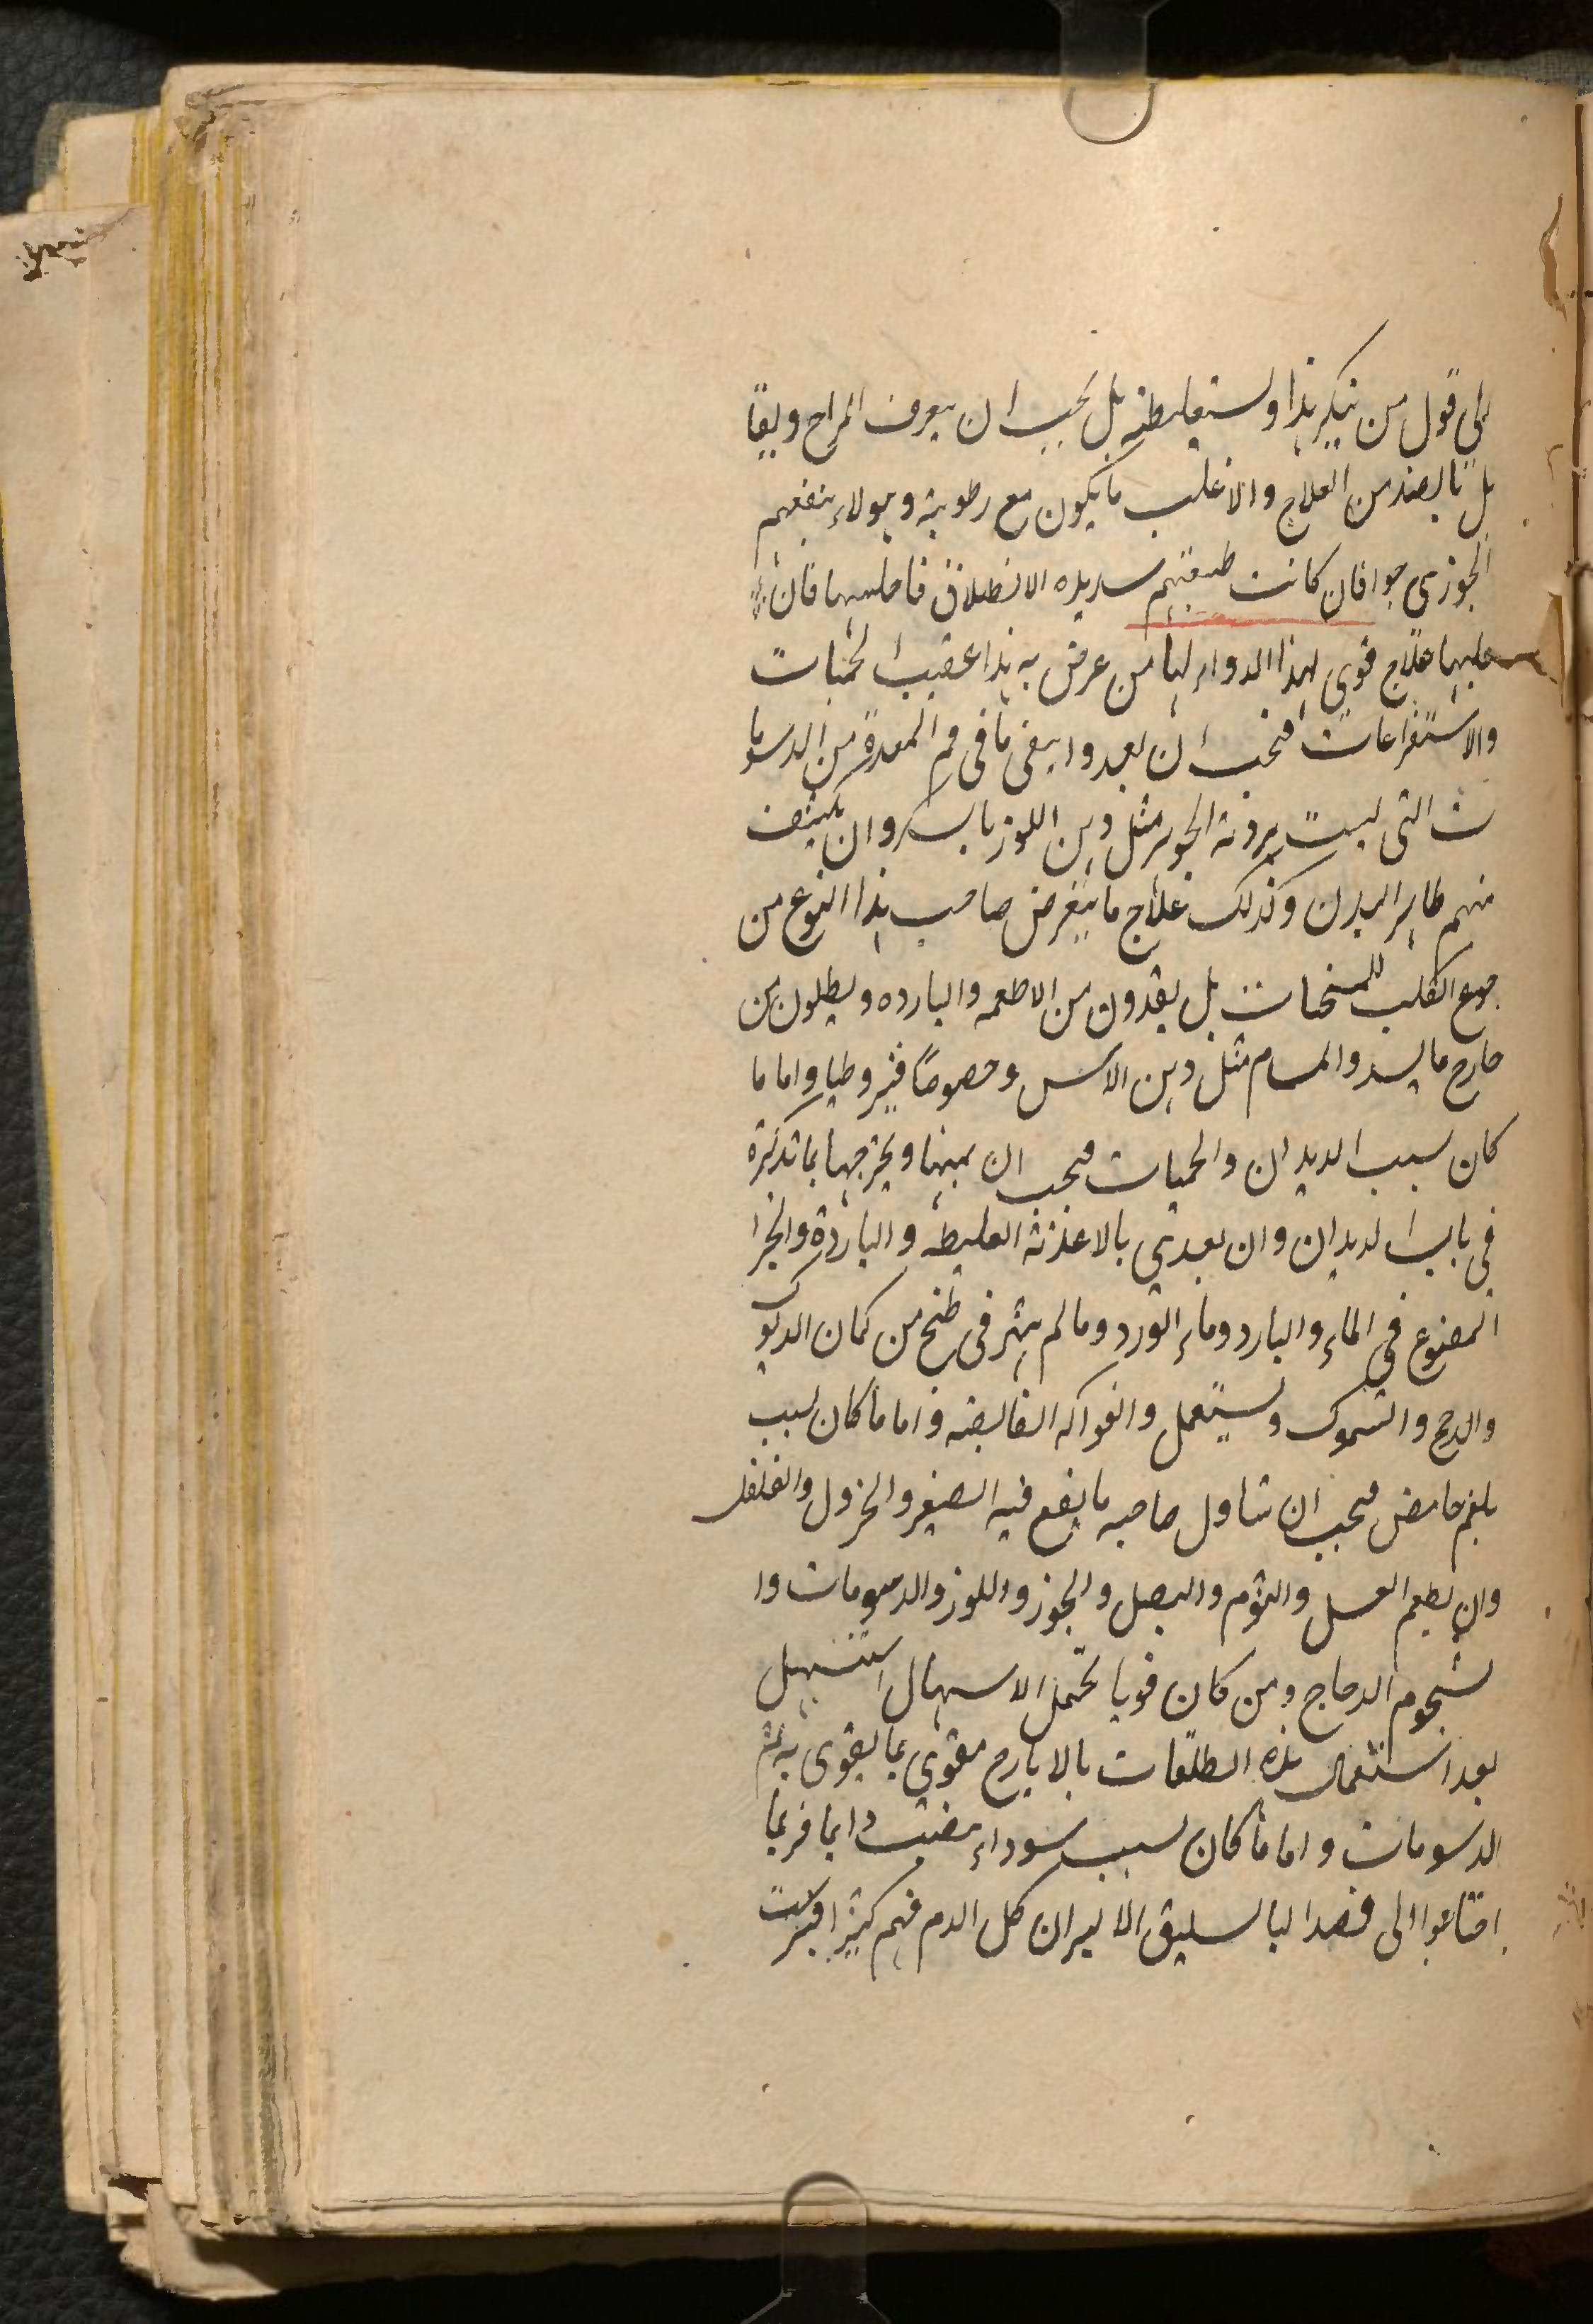 الى قول من ينكر هذا ويستغلطه بل يجب ان يعرف المزاج ويقا
بل بالضد من العلاج والاغلب ما يكون مع رطوبة وهولاء ينفعهم
الجوزى جدا فان كانت طبيعتهم شديده الانطلاق فاحبسها فان
حبسها علاج قوى لهذا الداء واما من عرض به هذا عقيب الحميات
والاستفراعات فيجب ان يغدوا يبقى ما فى فم المعدة من الدسوما
ت التى ليست بردئة الجوهر مثل دهن اللوز بالسكر وان يكثف
منهم ظاهر البدن وكذلك علاج ما يتعرض صاحب هذا النوع من
جوع الكلب للمسخنات بل يغدون من الاطعمه والبارده ويطلون من
خارج ما يسدد المسام مثل دهن الاس وخصوصا قيروطيا واما ما
كان سبب الديدان والحيات فيجب ان يميتها ويخرجها بما تذكرة
فى باب الديدان وان يغدى بالاغذئة الغليظة والباردة والخبز ا
المنقوع فى الماء والبارد وماء الورد وما لم يتهر فى طبخ من لحمان الديوك
والدجج والسموك ويستعمل والفواكه القابضه واما ما كان سبب
بلغم حامض فيجب ان يتناول صاحبه ما يقع فيه الصعتر والخردل والفلفل
وان يطعم العسل والثوم والبصل والجوز واللوز والدسومات وا
لشحوم الدجاج ومن كان قويا يحتمل الاسهال استسهل
بعد استعمال هذه الملطفات بالايارج مقوى بما يقوى به ثم
الدسومات واما ما كان سبب سوداء منصب دايما فربما
احتاجوا الى فصد الباسليق الايسر ان كل الدم فيهم كثيرا